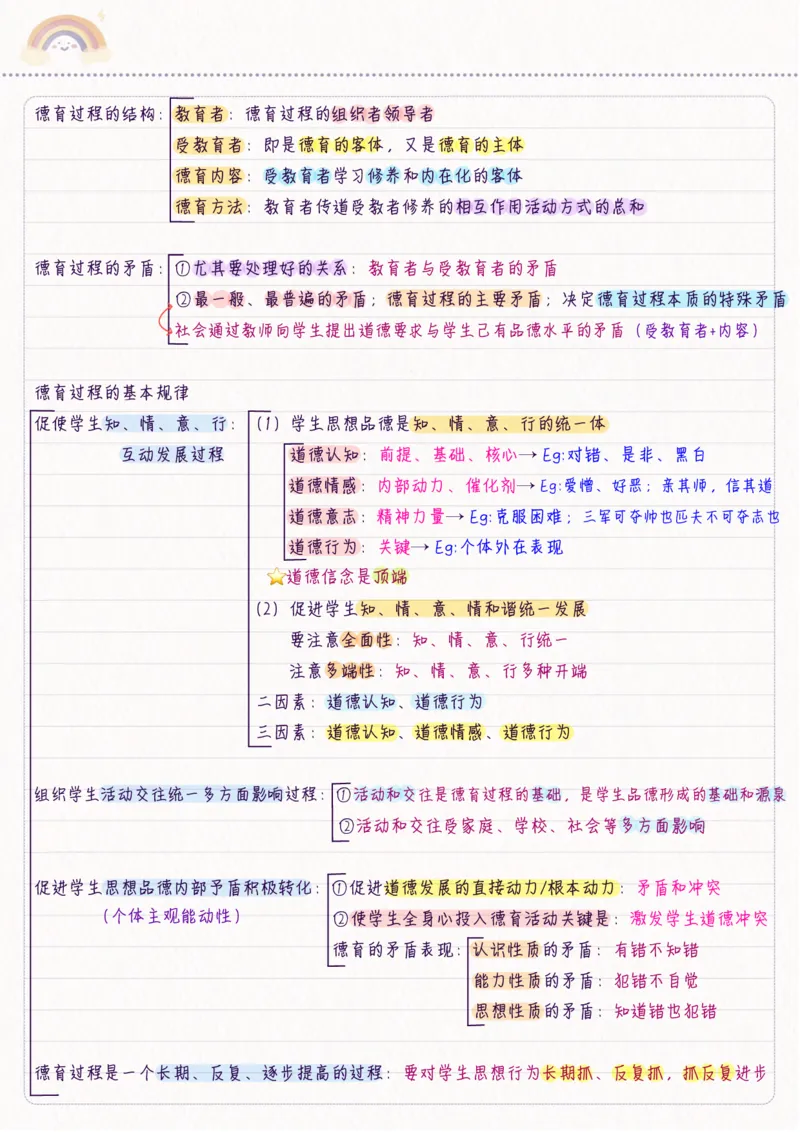 德育过程的结构：教育者：德育过程的组织者领导者
受教育者：即是德育的客体，又是德育的主体
德育内容：受教育者学习修养和内在化的客体
德育方法：教育者传道受教者修养的相互作用活动方式的总和
德育过程的矛盾：①尤其要处理好的关系：教育者与受教育者的矛盾
②最一般、最普遍的矛盾；德育过程的主要矛盾；决定德育过程本质的特殊矛盾
社会通过教师向学生提出道德要求与学生已有品德水平的矛盾（受教育者+内容）
德育过程的基本规律
促使学生知、情、意、行：（1）学生思想品德是知、情、意、行的统一体
互动发展过程 道德认知：前提、基础、核心→Eg:对错、是非、黑白
道德情感：内部动力、催化剂→Eg:爱憎、好恶；亲其师，信其道
道德意志：精神力量→Eg:克服困难；三军可夺帅也匹夫不可夺志也
道德行为：关键→Eg:个体外在表现
⭐道德信念是顶端
（2）促进学生知、情、意、情和谐统一发展
要注意全面性：知、情、意、行统一
注意多端性：知、情、意、行多种开端
二因素：道德认知、道德行为
三因素：道德认知、道德情感、道德行为
组织学生活动交往统一多方面影响过程：①活动和交往是德育过程的基础，是学生品德形成的基础和源泉
②活动和交往受家庭、学校、社会等多方面影响
促进学生思想品德内部矛盾积极转化：①促进道德发展的直接动力/根本动力：矛盾和冲突
（个体主观能动性） ②使学生全身心投入德育活动关键是：激发学生道德冲突
德育的矛盾表现：认识性质的矛盾：有错不知错
能力性质的矛盾：犯错不自觉
思想性质的矛盾：知道错也犯错
德育过程是一个长期、反复、逐步提高的过程：要对学生思想行为长期抓、反复抓，抓反复进步